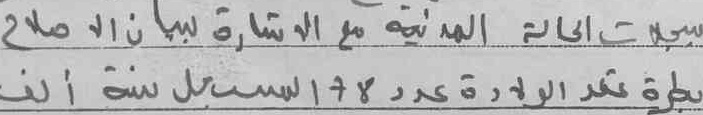 سجلات الحالة المدنية مع الاشارة لبيان الاصلاح
بطرة عقد الولادة عدد 178 المسجل سنة ألف